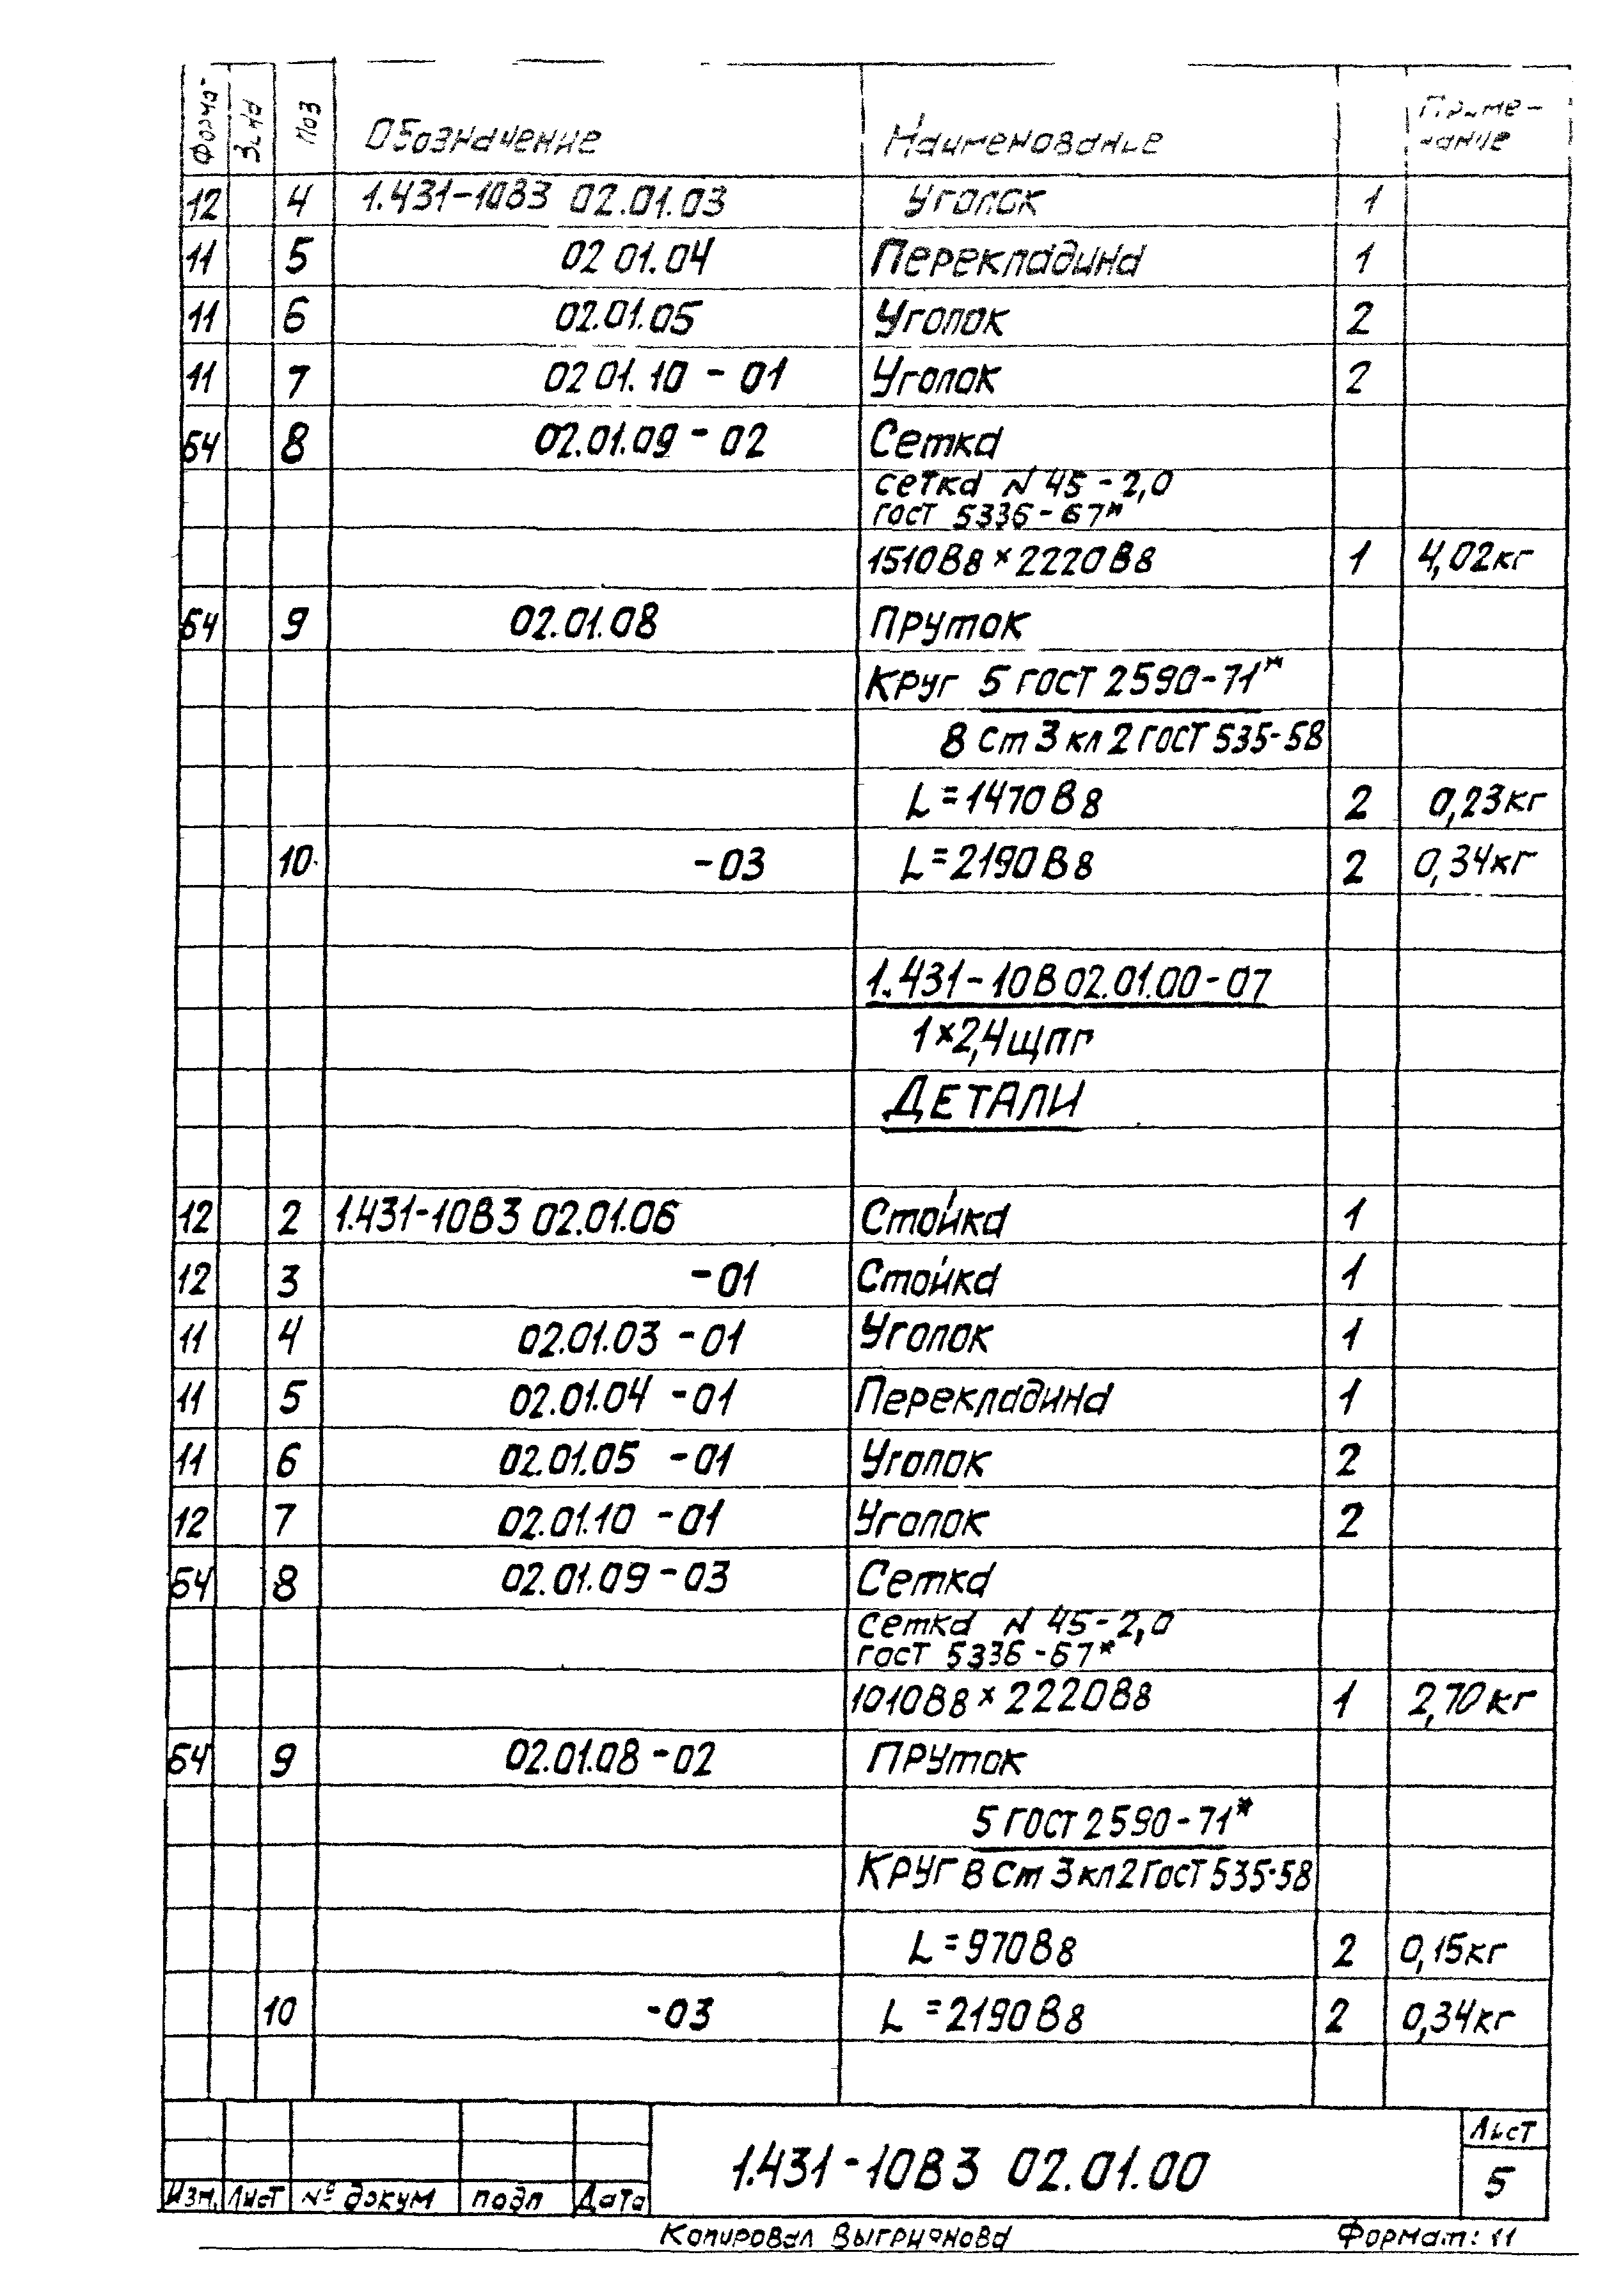 Формат Зона Поз Обозначение Наименование Примечание
12 4 1.431-10В3 02.01.03 Уголок 1
11 5 02 01.04 Перекладина 1
11 6 02.01.05 Уголок 2
11 7 02 01.10 - 01 Уголок 2
Б4 8 02.01.09 - 02 Сетка
сетка N 45 - 2,0
гост 5336 - 67*
1510В8 × 2220В8 1 4,02кг
Б4 9 02.01.08 Пруток
Круг 5 ГОСТ 2590-71*
В Ст 3 кл 2 ГОСТ 535-58
L = 1470 В8 2 0,23кг
10 -03 L = 2190 В8 2 0,34кг
1.431 - 10В 02.01.00 - 07
1×2,4 щпг
ДЕТАЛИ
12 2 1.431-10В3 02.01.06 Стойка 1
12 3 -01 Стойка 1
11 4 02.01.03 -01 Уголок 1
11 5 02.01.04 -01 Перекладина 1
11 6 02.01.05 -01 Уголок 2
12 7 02.01.10 -01 Уголок 2
Б4 8 02.01.09 - 03 Сетка
сетка N 45 - 2,0
гост 5336 - 67*
1010В8 × 2220В8 1 2,70 кг
Б4 9 02.01.08 - 02 Пруток
5 ГОСТ 2590 - 71*
Круг В Ст 3 кл 2 Гост 535-58
L = 970В8 2 0,15кг
10 -03 L = 2190 В8 2 0,34кг
1.431-10В3 02.01.00 Лист
5
Изм. Лист № докум подп Дата
Копировал Формат: 11